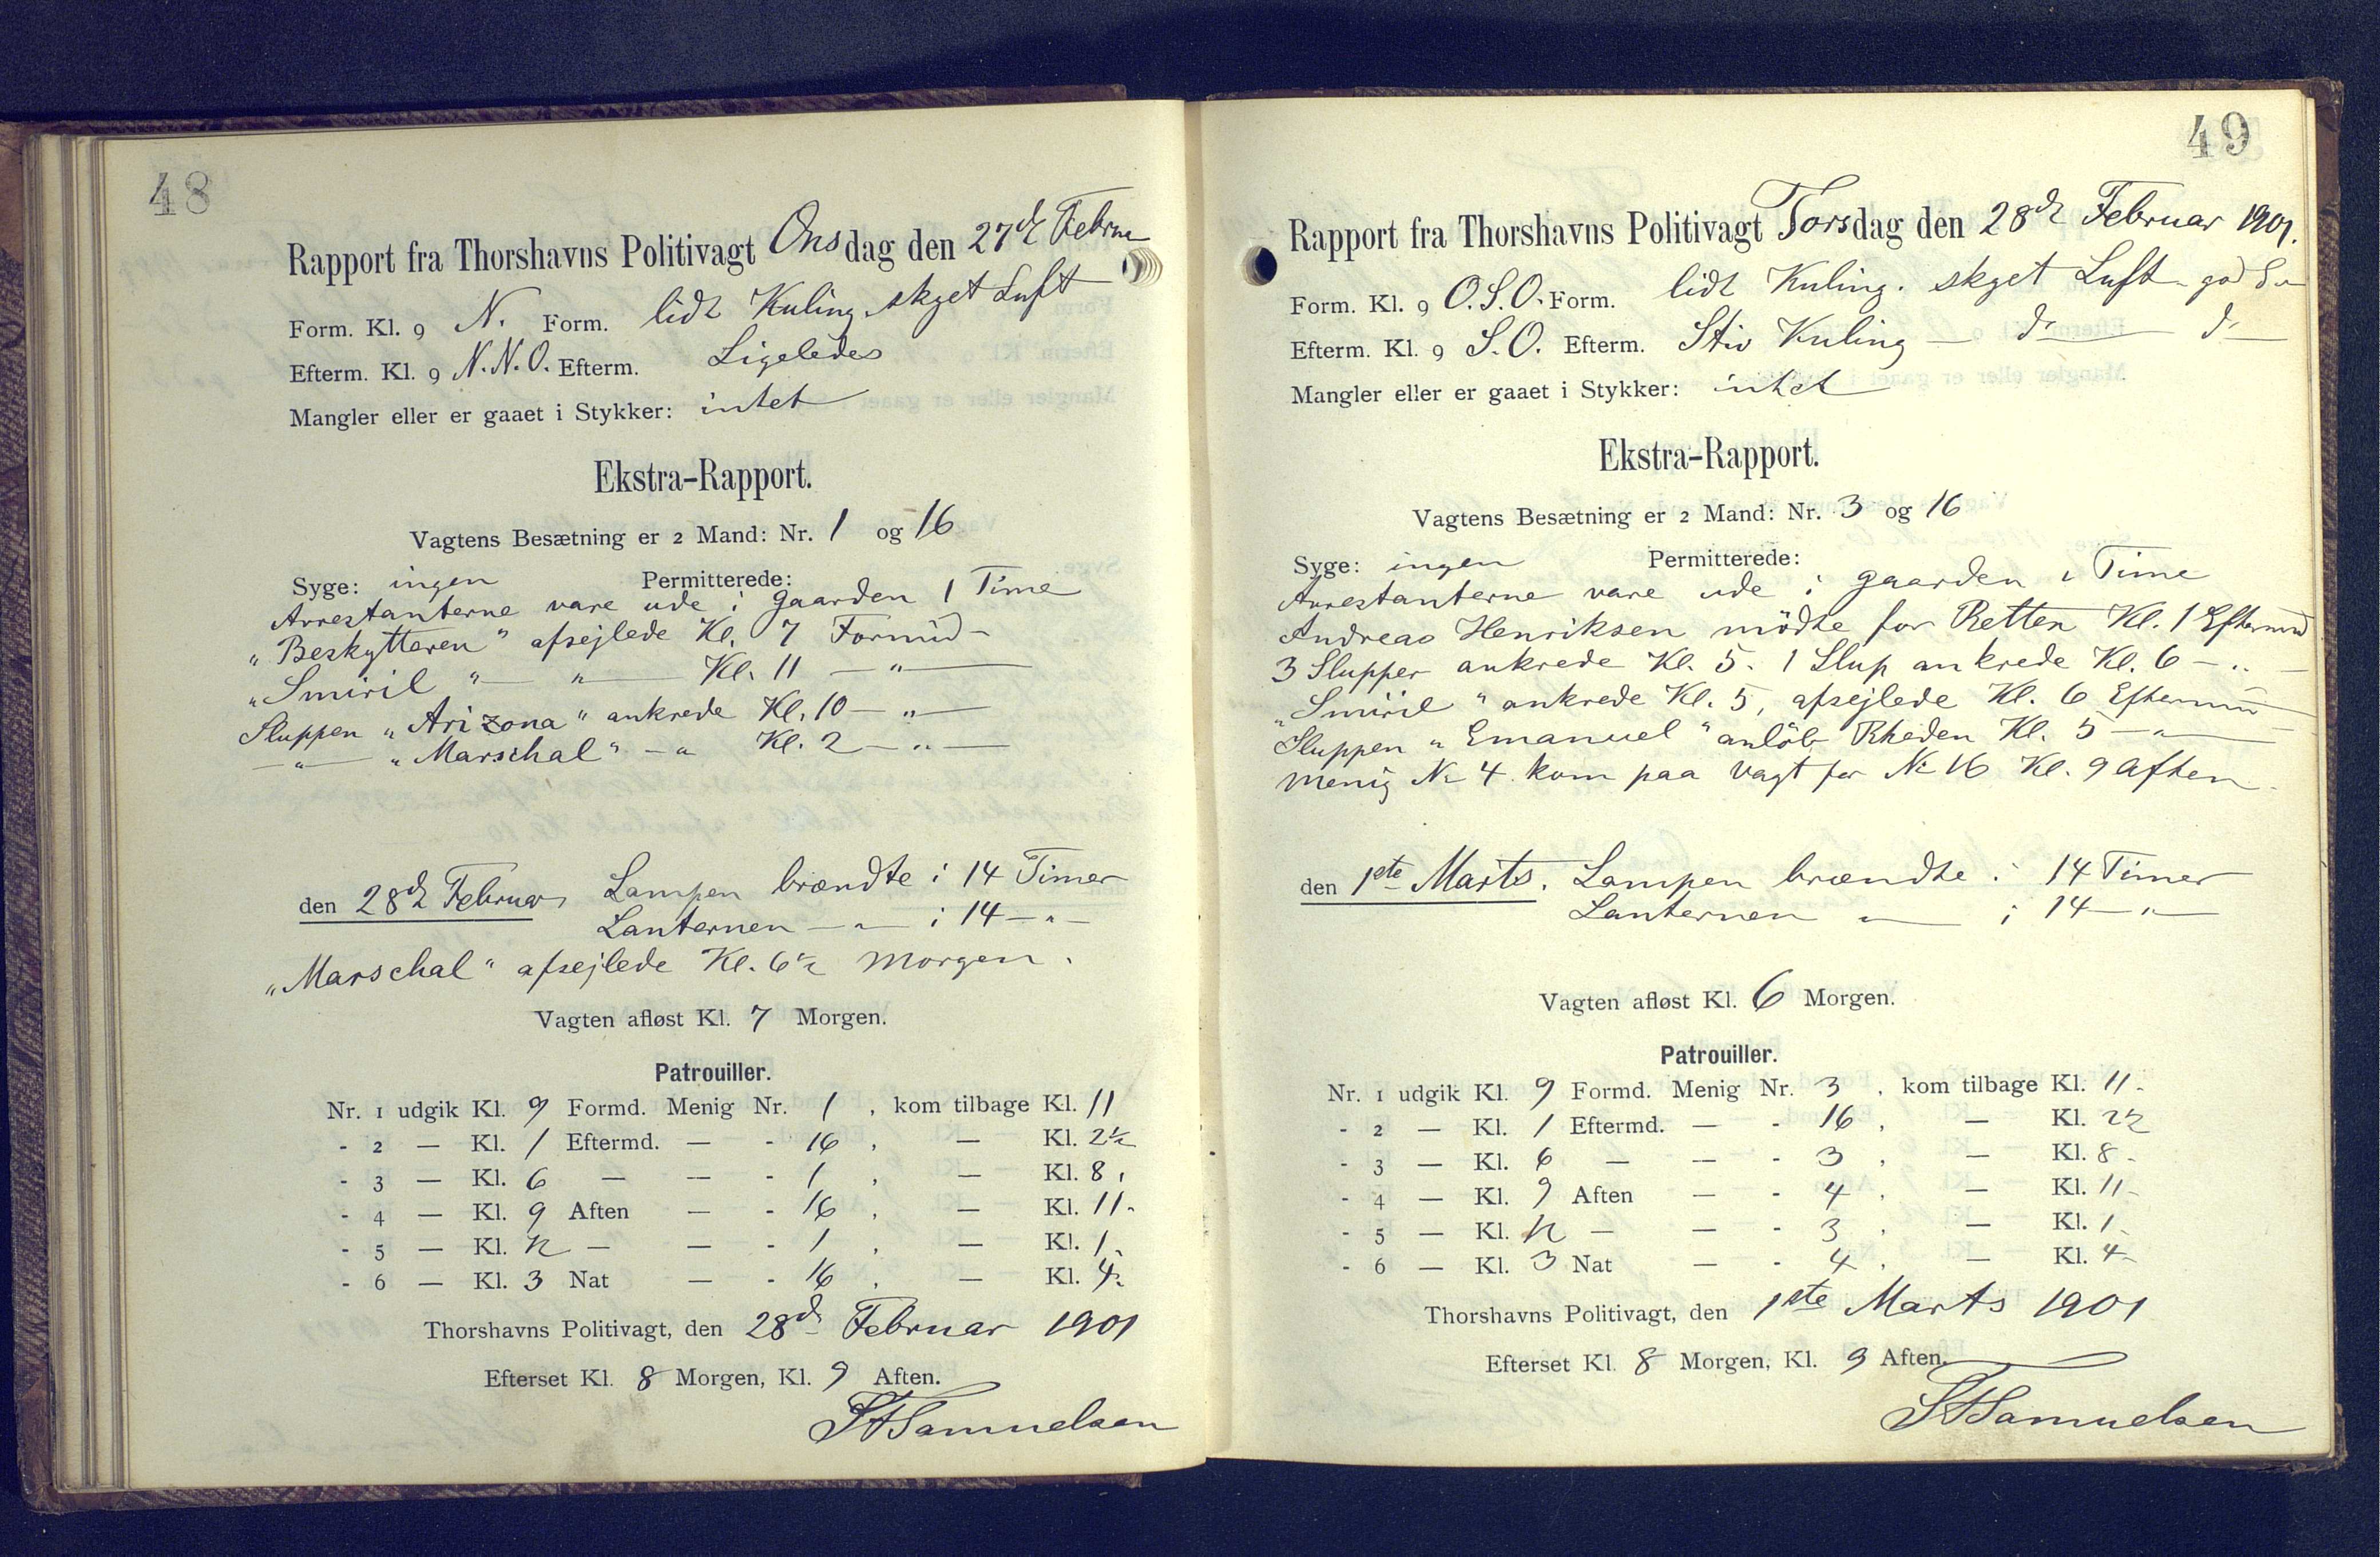 48
Rapport fra Thorshavns Politivagt Onsdag den 27d Februa
Form. Kl. 9 N. Form. lidt Kuling skyet Luft
Efterm. Kl. 9 N.N.O. Efterm. Ligeledes
Mangler eller er gaaet i Stykker: intet
Ekstra-Rapport.
Vagtens Besætning er 2 Mand: Nr. 1 og 16
Syge: ingen Permitterede:
Arrestanterne vare ude i gaarden 1 Time
"Beskytteren" afsejlede Kl. 7 Formid-
"Smiril " — " — Kl. 11 — " —
Sluppen "Arizona" ankrede Kl. 10 — " —
— " — "Marschal" — " Kl. 2 — " —
den 28d Februar Lampen brændte i 14 Timer
Lanternen — " — i 14 — " —
"Marschal" afsejlede Kl. 6½ Morgen.
Vagten afløst Kl. 7 Morgen.
Patrouiller.
Nr. 1 udgik Kl. 9 Formd. Menig Nr. 1, kom tilbage Kl. 11
- 2 — Kl. 1 Eftermd. — - 16, — Kl. 2½
- 3 — Kl. 6 — — - 1, — Kl. 8,
- 4 — Kl. 9 Aften — - 16, — Kl. 11-
- 5 — Kl. 12 — — - 1, — Kl. 1-
- 6 — Kl. 3 Nat — - 16, — Kl. 4-
Thorshavns Politivagt, den 28d Februar 1901
Efterset Kl. 8 Morgen, Kl. 9 Aften.
Samuelsen
49
Rapport fra Thorshavns Politivagt Torsdag den 28d Februar 1901.
Form. Kl. 9 O.S.O. Form. lidt Kuling. skyet Luft - god
Efterm. Kl. 9 S.O. Efterm. Stiv Kuling — do — do
Mangler eller er gaaet i Stykker: intet
Ekstra-Rapport.
Vagtens Besætning er 2 Mand: Nr. 3 og 16
Syge: ingen Permitterede:
Arrestanterne vare ude i gaarden 1 Time
Andreas Henriksen mödte for Retten Kl. 1 Eftermid
3 Slupper ankrede Kl. 5. 1 Slup ankrede Kl. 6 — " —
"Smiril" ankrede Kl. 5, afsejlede Kl. 6 Eftermid
Sluppen "Emanuel" anlöb Rheden Kl. 5 — " —
Menig No 4 kom paa Vagt for No 16 Kl. 9 Aften.
den 1ste Marts. Lampen brændte i 14 Timer
Lanternen — " — i 14 — " —
Vagten afløst Kl. 6 Morgen.
Patrouiller.
Nr. 1 udgik Kl. 9 Formd. Menig Nr. 3, kom tilbage Kl. 11-
- 2 — Kl. 1 Eftermd. — - 16, — Kl. 2½
- 3 — Kl. 6 — — - 3, — Kl. 8-
- 4 — Kl. 9 Aften — - 4, — Kl. 11-
- 5 — Kl. 12 — — - 3, — Kl. 1-
- 6 — Kl. 3 Nat — - 4, — Kl. 4-
Thorshavns Politivagt, den 1ste Marts 1901
Efterset Kl. 8 Morgen, Kl. 9 Aften.
Samuelsen